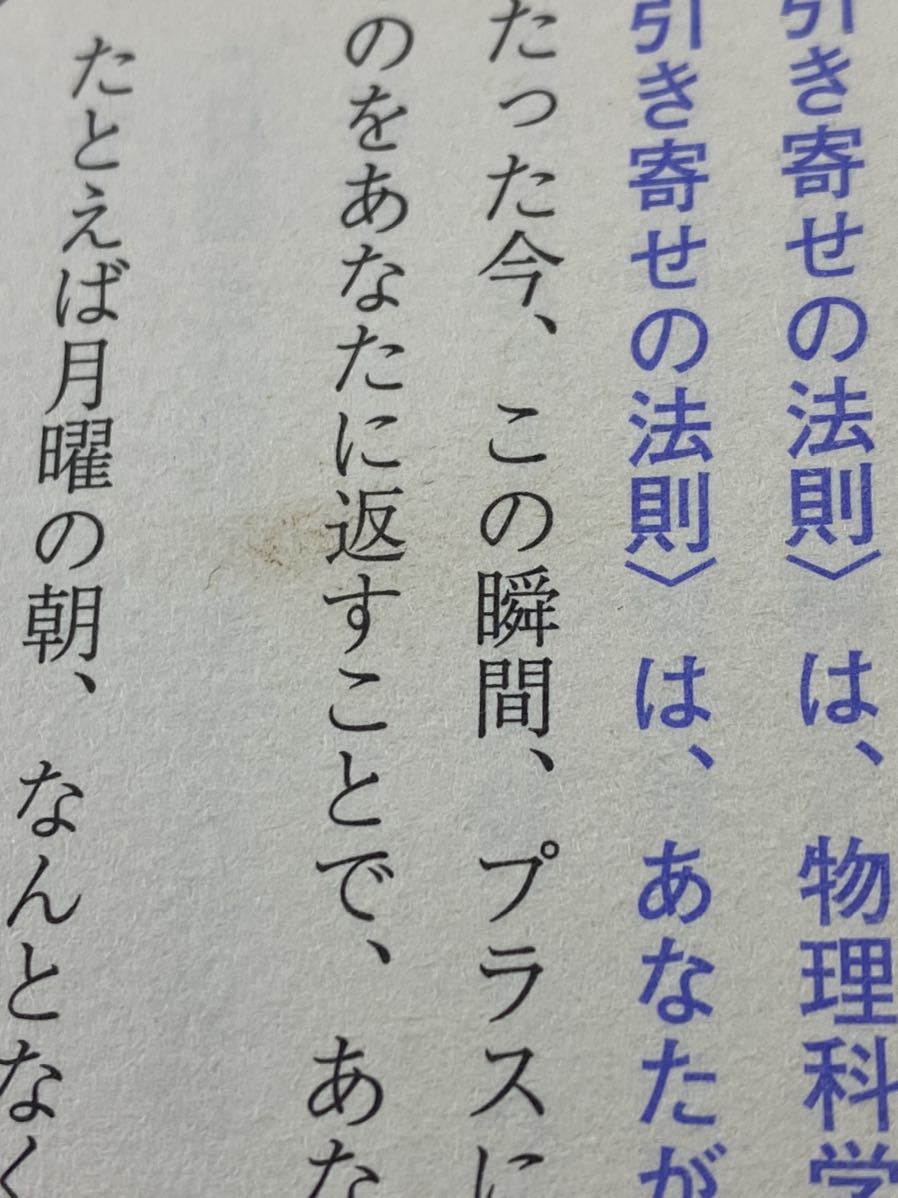 引き寄せの法則〉は、物理科学
引き寄せの法則〉は、あなたが
たった今、この瞬間、プラスに
のをあなたに返すことで、あな
たとえば月曜の朝、なんとなく